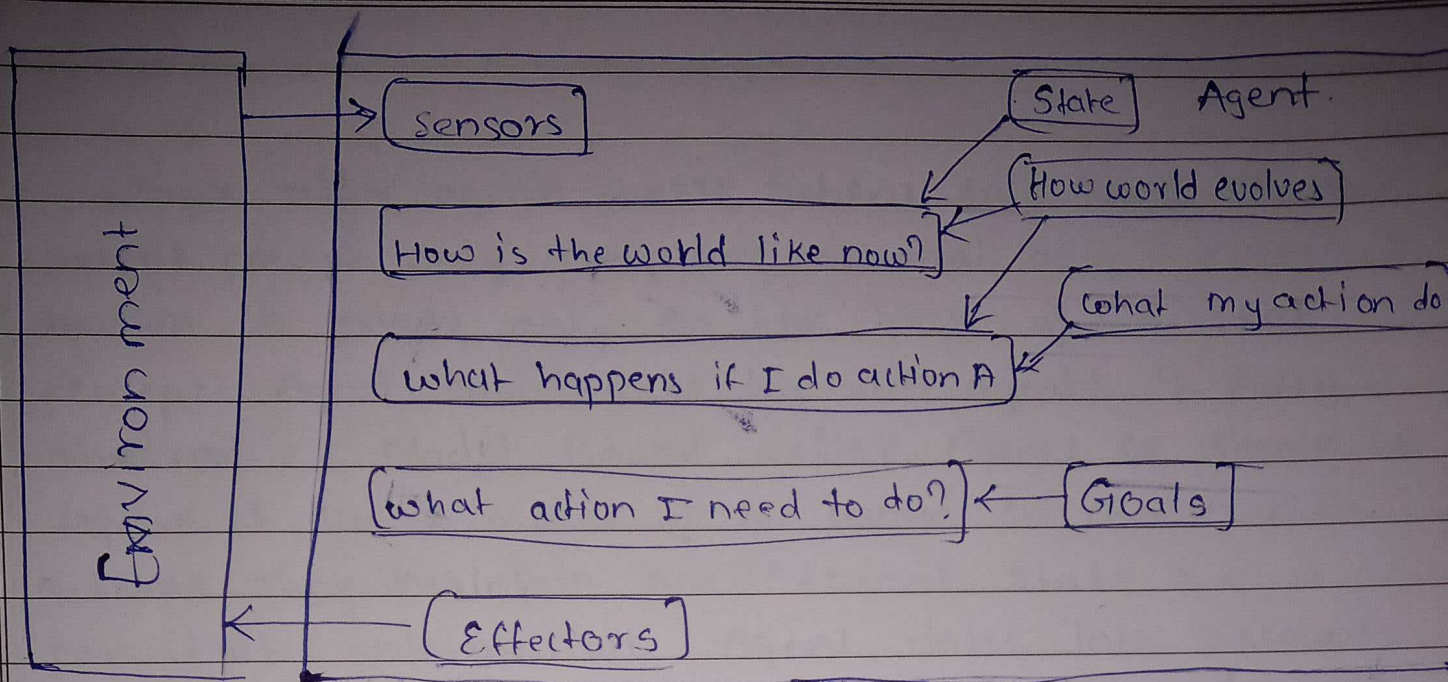 Sensors
State
Agent.
How world evolves
How is the world like now?
what my action do
what happens if I do action A
what action I need to do?
Goals
Effectors
Environment